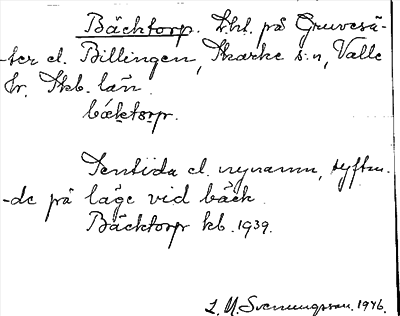 Bäcktorp. Lht. på Gruvesä-
-ter el. Billingen, Skarke s:n, Valle
hr. Skb. län.
bäktorp.
Sentida el. nynamn, syftan-
-de på läge vid bäck.
Bäcktorp kb. 1939.
L. M. Svenungsson. 1946.